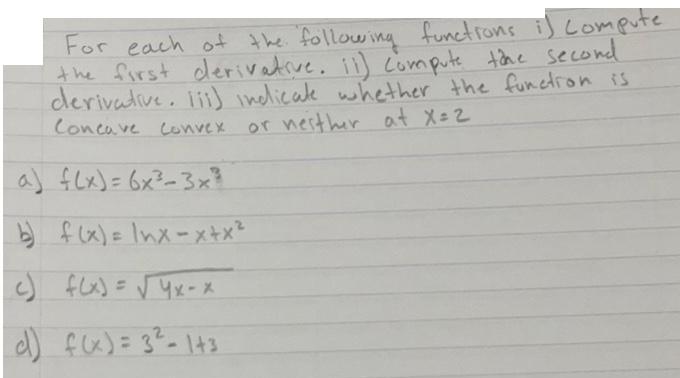 For each of the following functions i) compute
the first derivative. ii) compute the second
derivative. iii) indicate whether the function is
concave convex or neither at x=2
a) f(x) = 6x³ - 3x³
b) f(x) = lnx - x+x²
c) f(x) = √4x-x
d) f(x) = 3² - 1+3